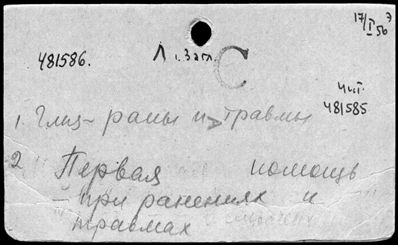 17/I 56
481586.
Л
С
чит.
481585
1. Глиц - раны и травмы
2 Первая помощь
- при ранениях и
травмах